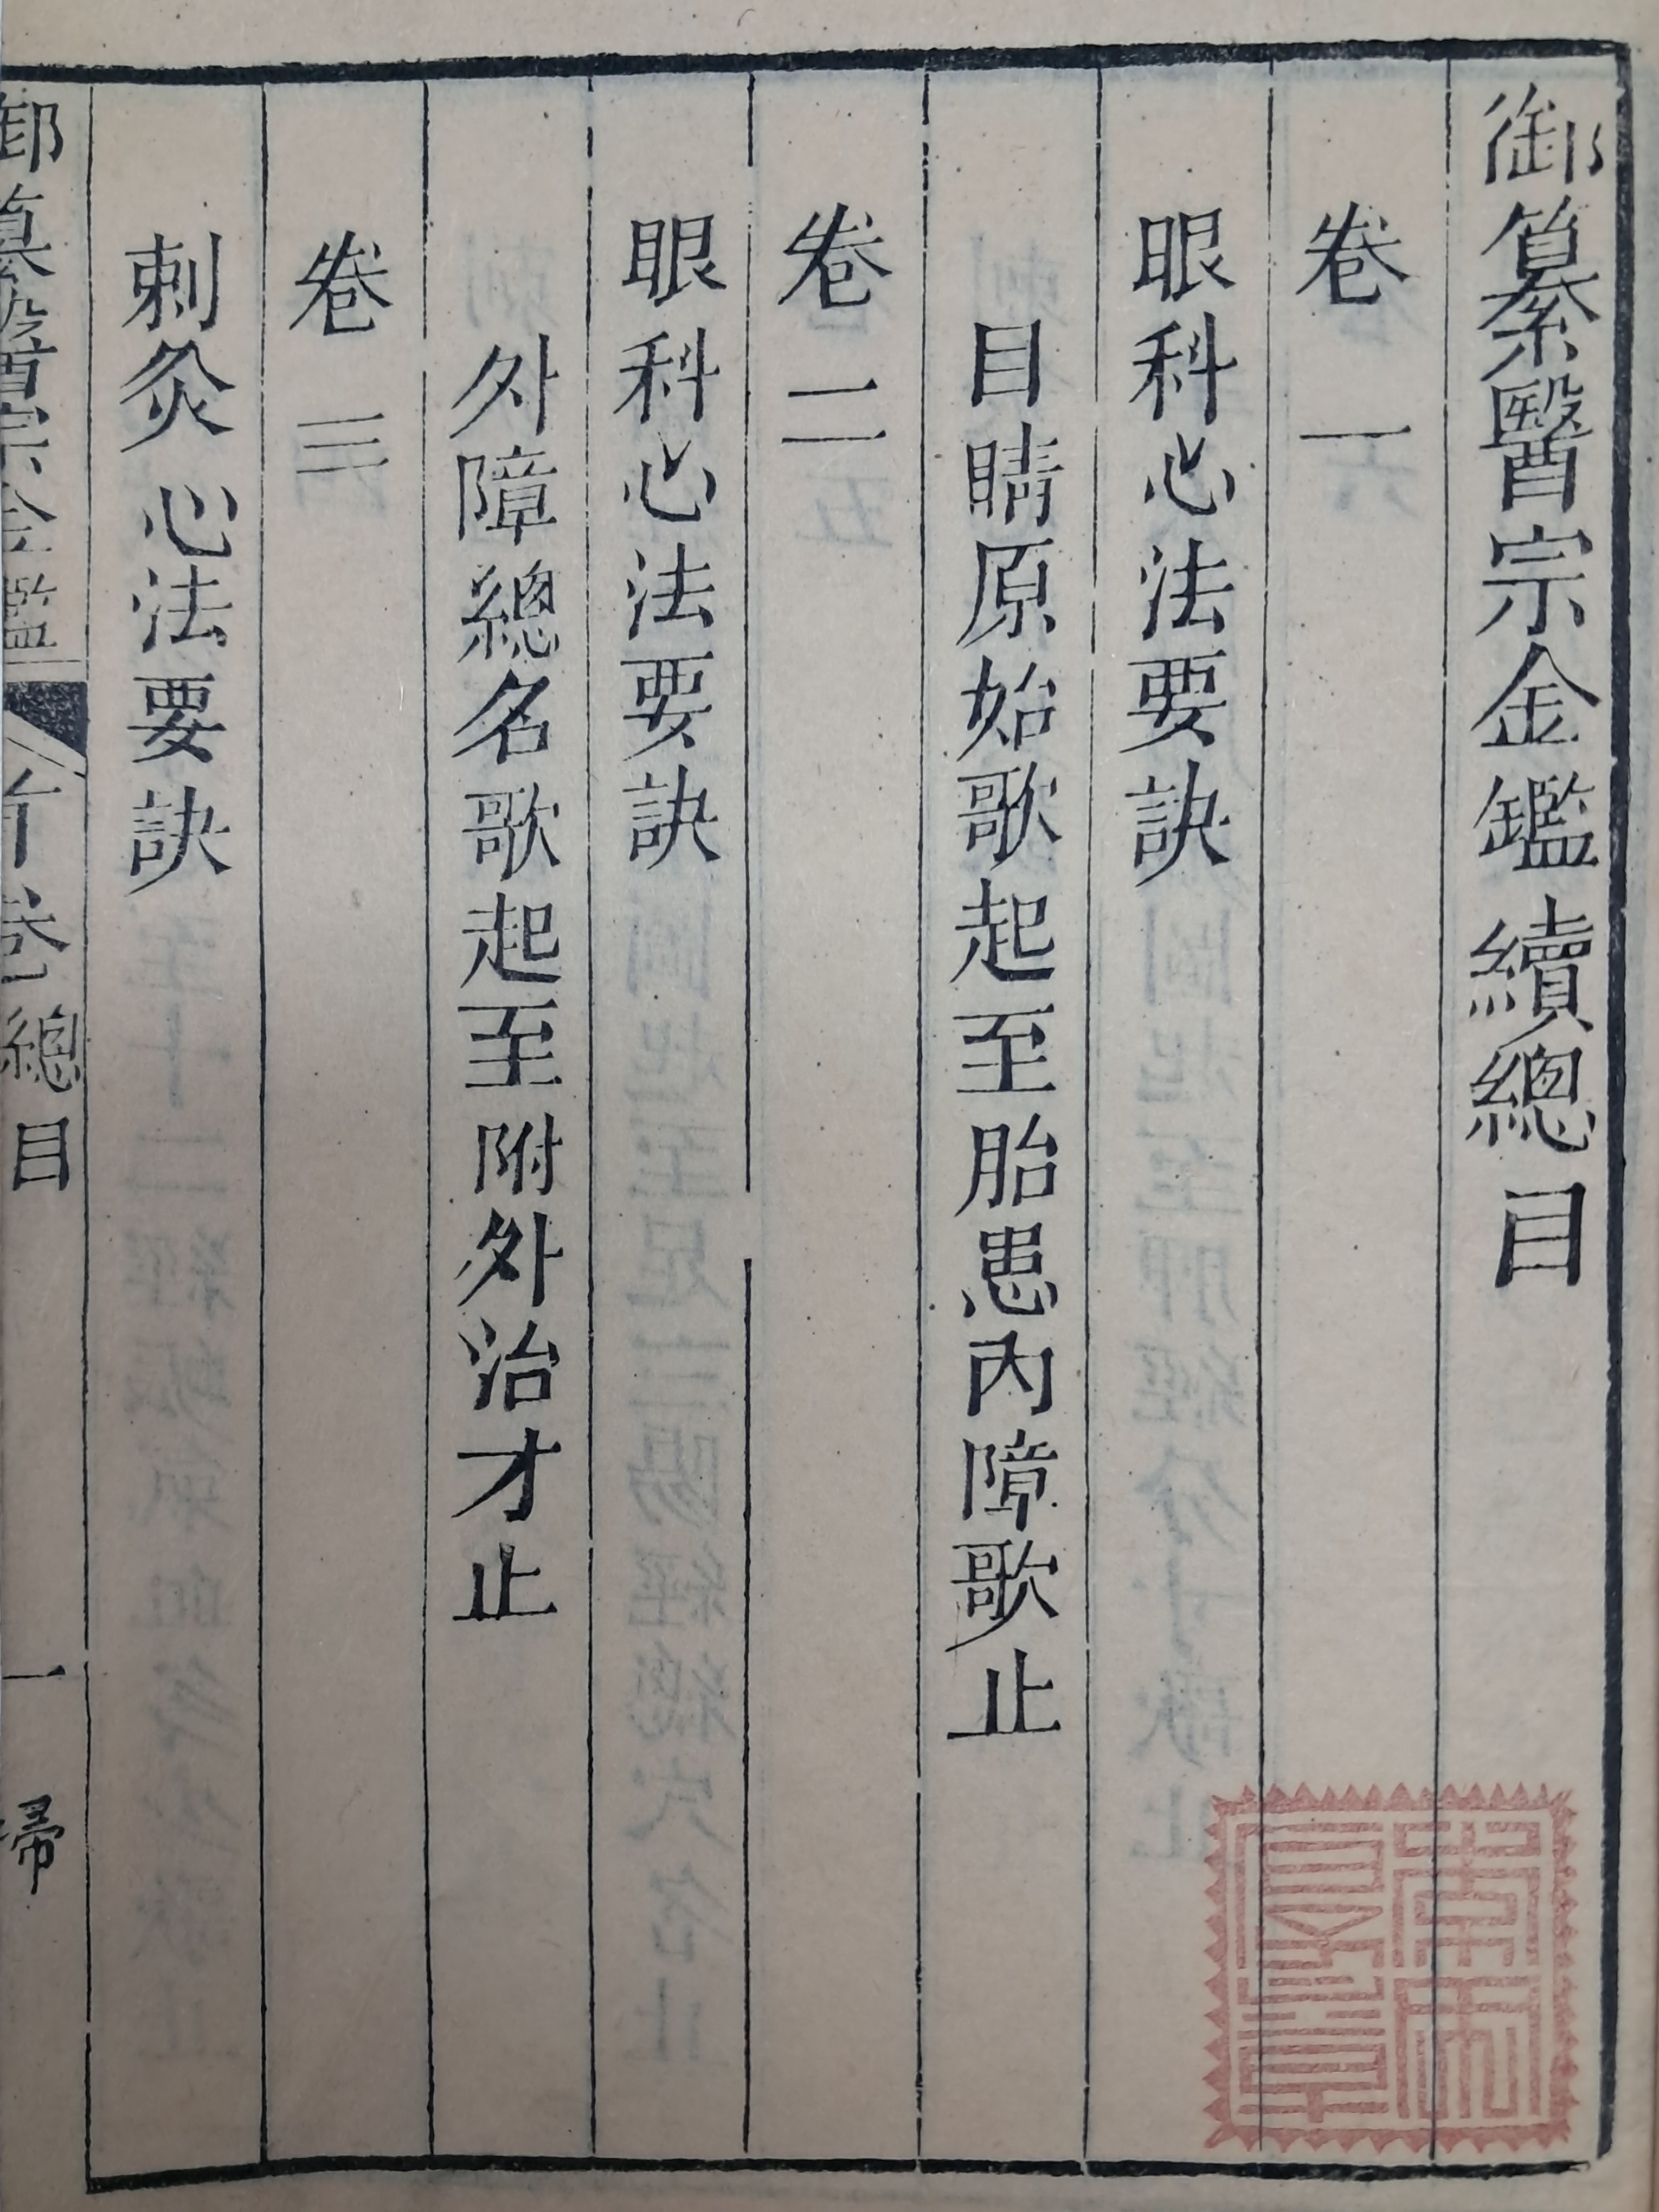 御纂醫宗金鑑續總目
卷一
眼科心法要訣
目睛原始歌起至胎患內障歌止
卷二
眼科心法要訣
外障總名歌起至附外治才止
卷三
刺灸心法要訣
御纂醫宗金鑑 卷總目 一